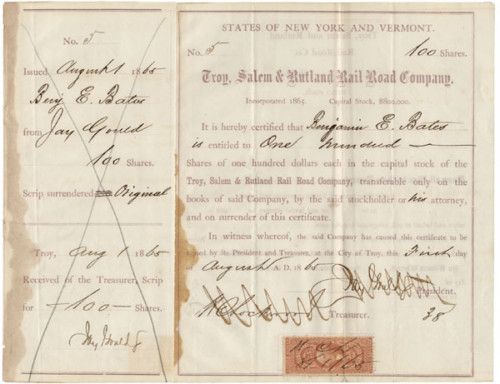 No. 5
Issued August 1 1865
Benj E. Bates
from Jay Gould
100 Shares.
Scrip surrendered Original
Troy, Aug 1 1865
Received of the Treasurer, Scrip
for -100- Shares.
Jay Gould
STATES OF NEW YORK AND VERMONT.
No. 5 100 Shares.
Troy, Salem & Rutland Rail Road Company.
Incorporated 1865. Capital Stock, $800,000.
It is hereby certified that Benjamin E. Bates
is entitled to One hundred
Shares of one hundred dollars each in the capital stock of the
Troy, Salem & Rutland Rail Road Company, transferable only on the
books of said Company, by the said stockholder or his attorney,
and on surrender of this certificate.
In witness whereof, the said Company has caused this certificate to be
signed by its President and Treasurer, at the City of Troy, this First day
of August A. D. 1865
Jay Gould President.
Treasurer. 38